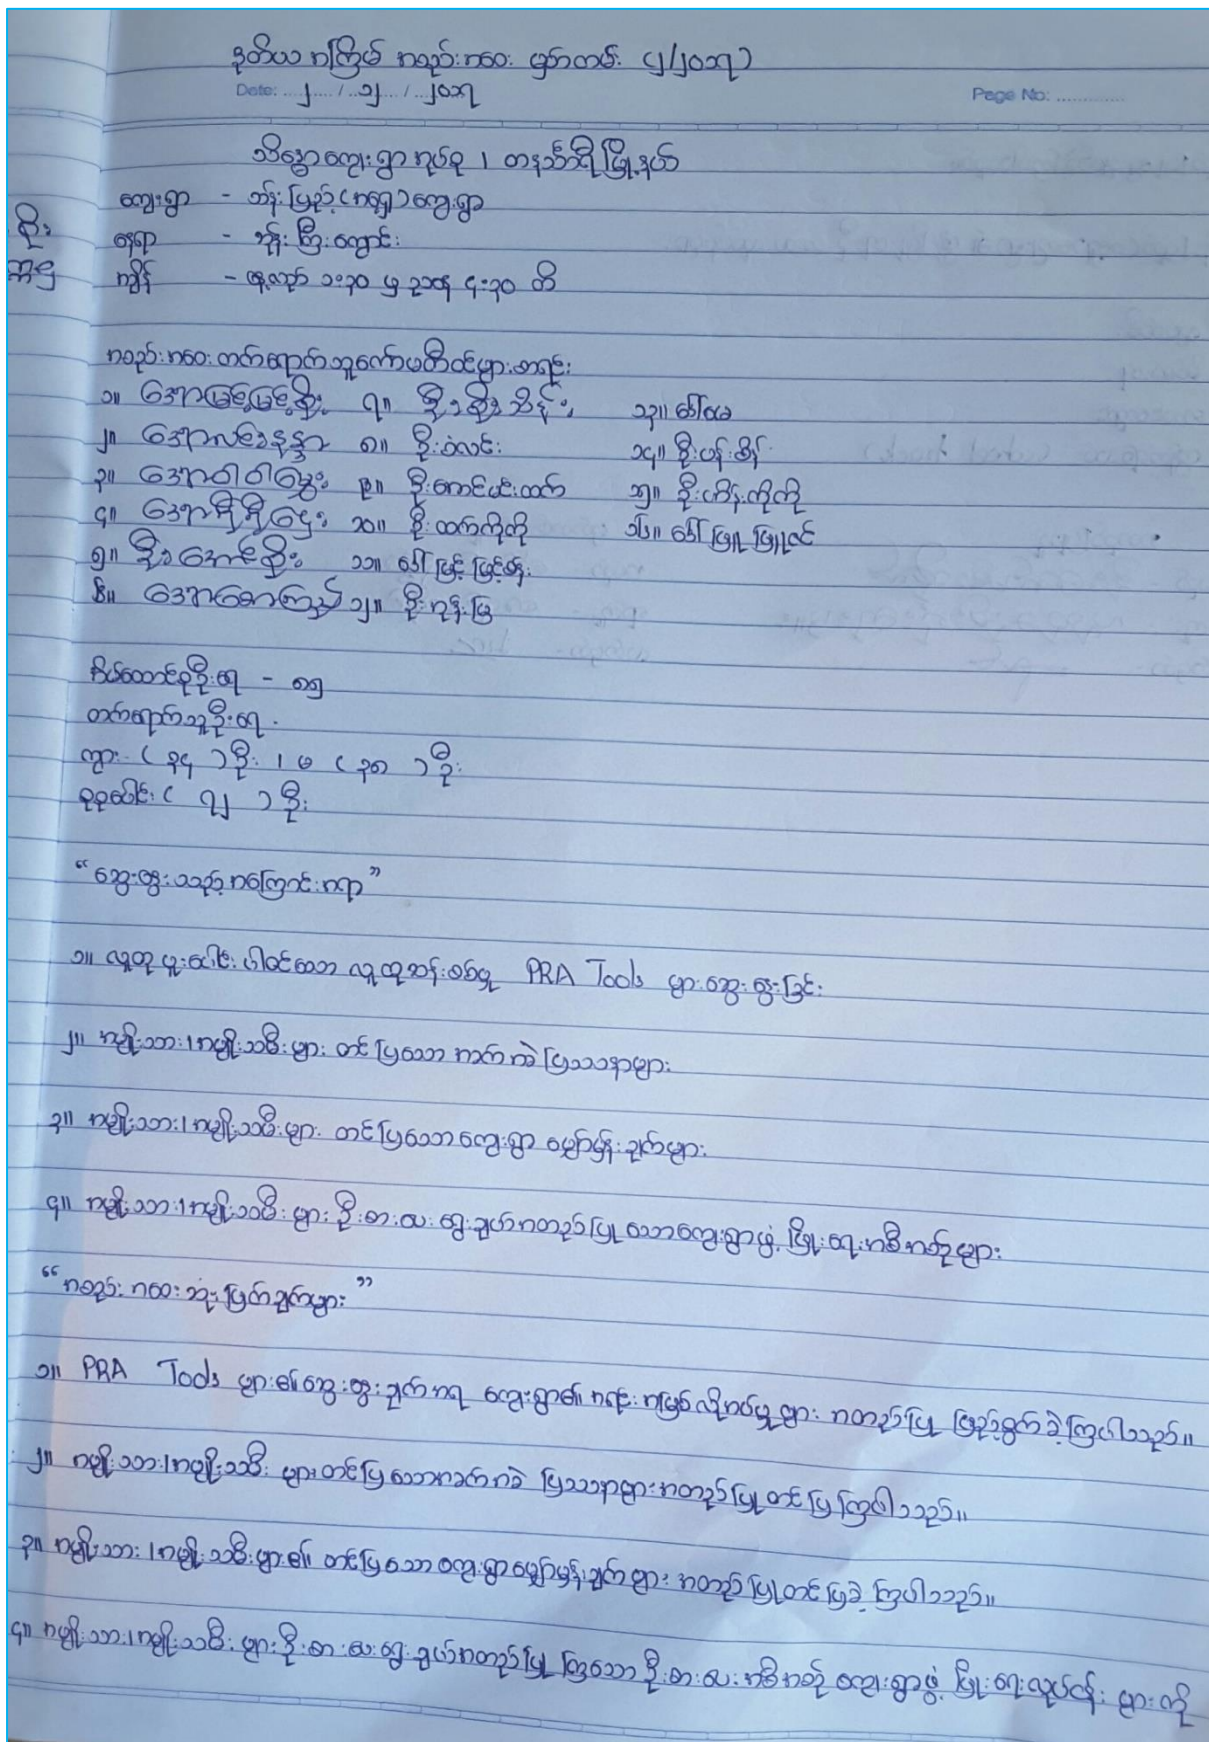 ဒုတိယအကြိမ် အစည်းအဝေး မှတ်တမ်း (၂/၂၀၁၇)
Date: ၂ / ၁၂ / ၂၀၁၇ Page No:
ကျေးရွာအုပ်စု ၊ တနင်္သာရီမြို့နယ်
ကျေးရွာ - (အရှေ့) ကျေးရွာ
နေရာ - ဘုန်းကြီးကျောင်း
အချိန် - နေ့လည် ၁း၃၀ မှ ညနေ ၄း၃၀ ထိ
အစည်းအဝေးတက်ရောက်သူကော်မတီဝင်များစာရင်း
၁။ ဒေါ်မြမြစိုး ၇။ ဦးစိုးသိန်း ၁၃။ ဒေါ်ထမ
၂။ ၈။ ဦးဝံလင်း ၁၄။ ဦးဟန်စိန်
၃။ ၉။ ဦးအောင်မင်းထက် ၁၅။ ဦးကိုကို
၄။ ၁၀။ ဦးထက်ကိုကို ၁၆။ ဒေါ်ဖြူဖြူဝင်
၅။ ဦးအောင်စိုး ၁၁။ ဒေါ်မြင့်မြင့်စန်း
၆။ ၁၂။ ဦးထွန်းမြ
အိမ်ထောင်စုဦးရေ - ၈၅
တက်ရောက်သူဦးရေ
ကျား ( ၃၄ ) ဦး ၊ မ ( ၃၈ ) ဦး
စုစုပေါင်း ( ၇၂ ) ဦး
“ဆွေးနွေးသည့်အကြောင်းအရာ”
၁။ လူထုပူးပေါင်းပါဝင်သော လူထုဆန်းစစ်မှု PRA Tools များဆွေးနွေးခြင်း
၂။ အမျိုးသား၊အမျိုးသမီးများ တင်ပြသော အခက်အခဲပြဿနာများ
၃။ အမျိုးသား၊အမျိုးသမီးများ တင်ပြသောကျေးရွာ မျှော်မှန်းချက်များ
၄။ အမျိုးသား၊အမျိုးသမီးများ ဦးစားပေးရွေးချယ်အတည်ပြုသောကျေးရွာဖွံ့ဖြိုးရေးအစီအစဉ်များ
“အစည်းအဝေးဆုံးဖြတ်ချက်များ”
၁။ PRA Tools များ၏ဆွေးနွေးချက်အရ ကျေးရွာ၏အရင်းအမြစ်လိုအပ်မှုများ အတည်ပြု ဖြည့်စွက်ခဲ့ကြပါသည်။
၂။ အမျိုးသား၊အမျိုးသမီး များတင်ပြသောအခက်အခဲ ပြဿနာများအတည်ပြုတင်ပြကြပါသည်။
၃။ အမျိုးသား၊အမျိုးသမီးများ၏ တင်ပြသော ကျေးရွာမျှော်မှန်းချက်များ အတည်ပြုတင်ပြခဲ့ကြပါသည်။
၄။ အမျိုးသား၊အမျိုးသမီးများဦးစားပေးရွေးချယ်အတည်ပြုကြသောဦးစားပေးအစီအစဉ် ကျေးရွာဖွံ့ဖြိုးရေးလုပ်ငန်းများကို